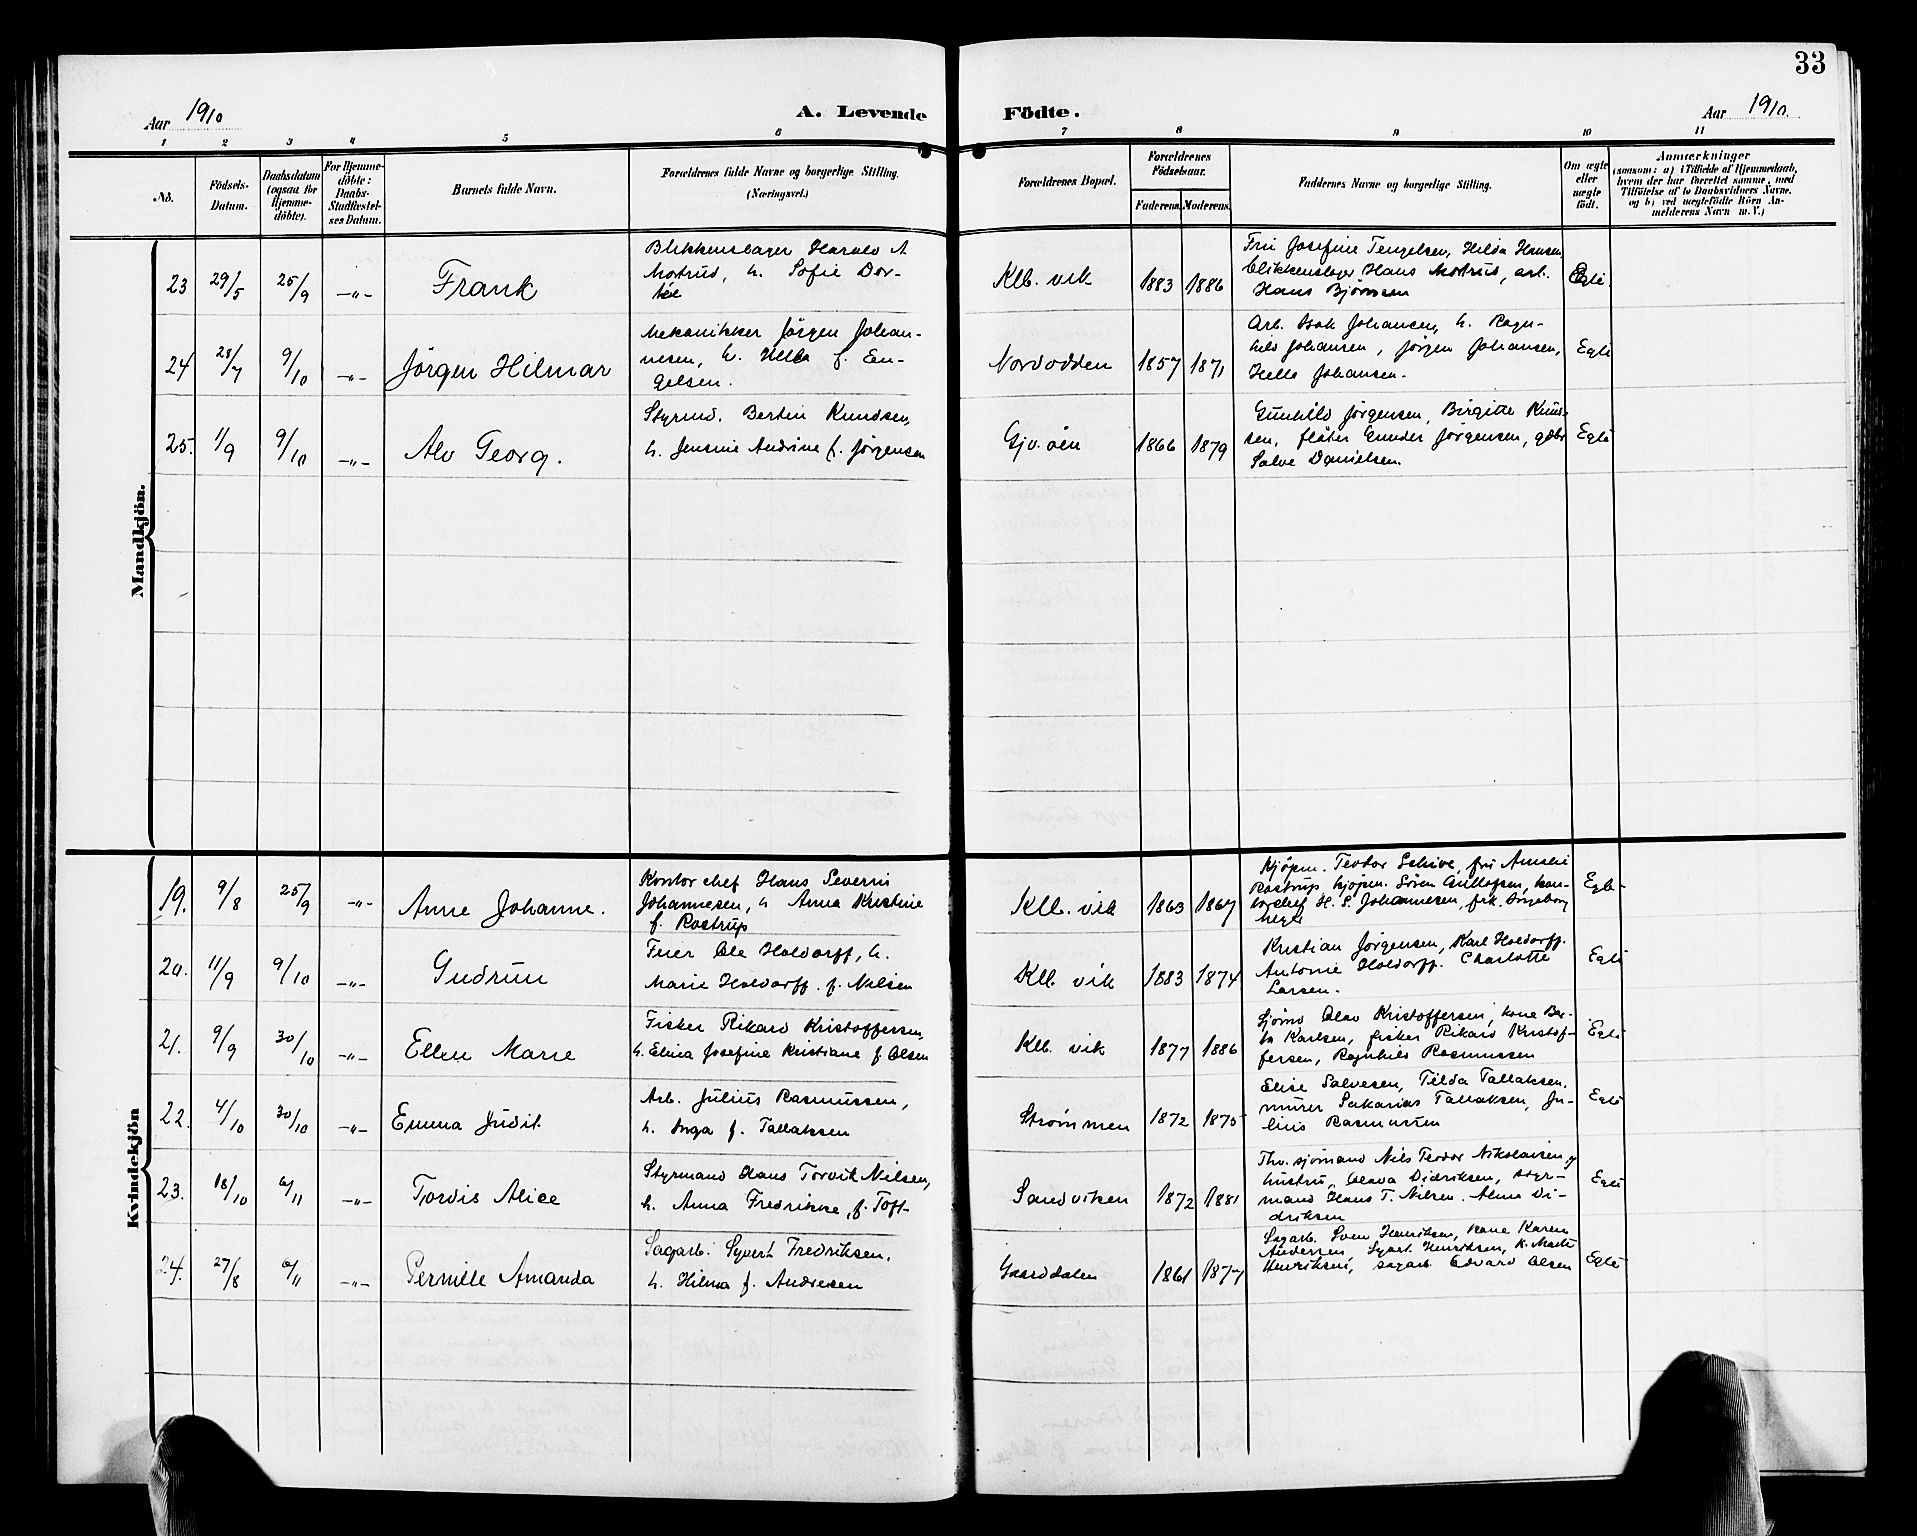 33
Aar 1910
A. Levende
Födte.
Aar 1910.
1 2 3 4 5 6 7 8 9 10 11
No.
Födsels-
Datum.
Daabsdatum
(ogsaa for
Hjemme-
döbte).
For Hjemme-
döbte:
Daabs-
Stadfæstel-
ses Datum.
Barnets fulde Navn.
Forældrenes fulde Navne og borgerlige Stilling.
(Næringsvei.)
Forældrenes Bopæl.
Forældrenes
Födselsaar.
Faderens. Moderens.
Faddernes Navne og borgerlige Stilling.
Om ægte
eller
uægte
födt.
Anmærkninger
(saasom: a) i Tilfælde af Hjemmedaab,
hvem der har forrettet samme, med
Tilföielse af to Daabsvidners Navne.
og b) ved uægtefödte Börn An-
melderens Navn m. V.)
Mandkjön.
23 29/5 25/9 -"- Frank
Blikkenslager Harald A
Motrud, h. Sofie Dor-
Klb. vik 1883 1886
Fru Josefine Tengelsen, Hilda Hansen
blikkenslager Hans Motrud, arb.
Hans Bjørnsen
Egte
24 28/7 9/10 -"- Jörgen Hilmar
Mekanikker Jörgen Johan-
nesen, h. Helle f. En-
gelsen.
Nordodden 1857 1871
Arb. Isak Johansen, h. Ragn-
hild Johansen, Jörgen Johansen,
Helle Johansen.
Egte
25. 1/9 9/10 -"- Alv Georg.
Styrmd. Bertin Knudsen,
h. Jensine Andrine f. Jørgensen
Gjv. öen 1866 1879
Gunhild Jørgensen, Birgitte Knud-
sen, fløter Gunder Jørgensen, gdbr
Salve Danielsen.
Egte
Kvindekjön
19. 9/8 25/9 -"- Anne Johanne.
Kontorchef Hans Severin
Johannesen, h. Anna Kristine
f. Rostrup
Klb. vik 1863 1867
Kjøpm. Teodor Schive, fru Amalie
Rostrup kjøpm. Sören Gullofsen, kon-
torchef H. S. Johannesen, frk. Ingeborg
Meyer
Egte
20. 11/9 9/10 -"- Gudrun
Feier Ole Holdorff, h.
Marie Holdorff. f. Nilsen
Klb. vik 1883 1874
Kristian Jørgensen, Karl Holdorff.
Antonie Holdorff. Charlotte
Larsen.
Egte
21. 9/9 30/10 -"- Ellen Marie
Fisker Rikard Kristoffersen,
h. Elina Josefine Kristiane f Olsen
Klb. vik 1877 1886
Sjømd Olav Kristoffersen, kone Ber-
ta Karlsen, fisker Rikard Kristof-
fersen, Ragnhild Rasmussen
Egte
22. 4/10 30/10 -"- Emma Judit.
Arb. Julius Rasmussen,
h. Inga f. Tallaksen
Strømmen 1872 1875
Elise Salvesen, Tilda Tallaksen.
murer Sakarias Tallaksen, Ju-
lius Rasmussen
Egte
23. 18/10 6/11 -"- Tordis Alice
Styrmand Hans Torvik Nilsen,
h. Anna Fredrikke, f. Toft-
Sandviken 1872 1881
Thv. sjømand Nils Teodor Nikolaisen og
hustru, Olava Didriksen, styr-
mand Hans T. Nilsen. Alma Di-
driksen
Egte
24. 27/8 6/11 -"- Pernille Amanda
Sagarb. Syvert Fredriksen.
h. Hilma f. Andresen
Gaarddalen 1861 1877
Sagarb. Sven Henriksen, kone Karen
Andersen, Syvert Henriksen, k. Marte
Henriksen, sagarb. Edvard Olsen
Egte